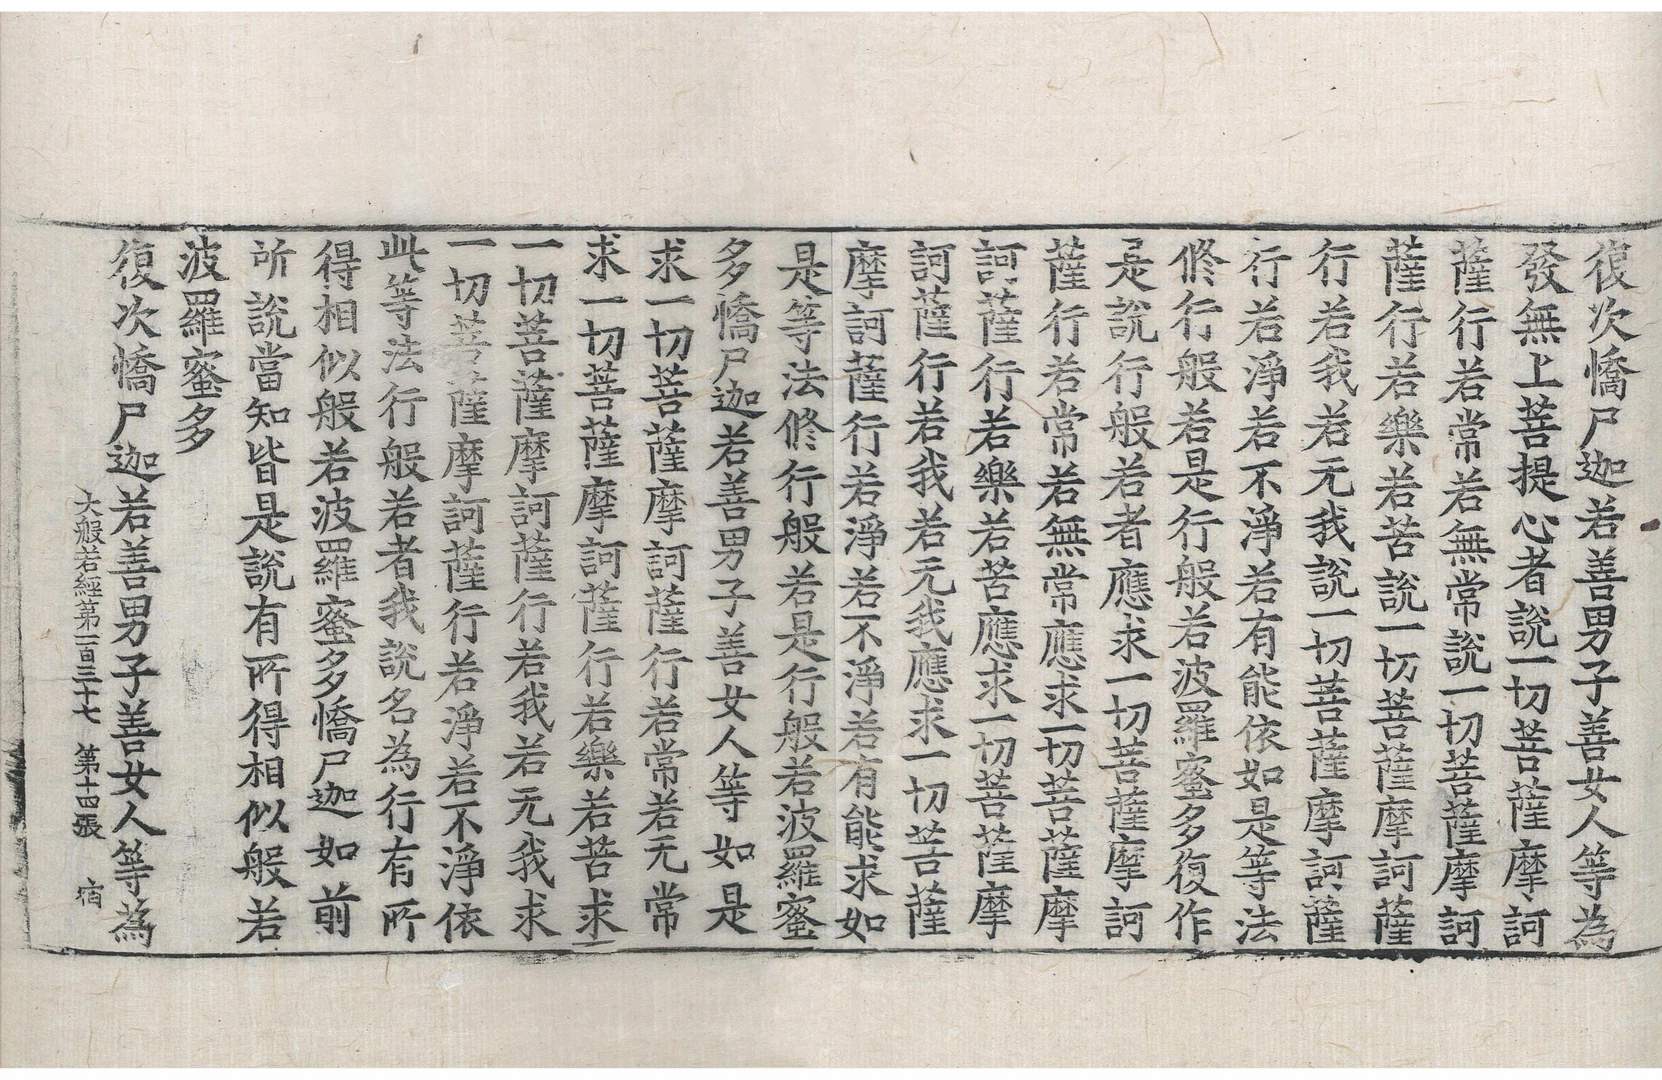 復次憍尸迦若善男子善女人等為
發無上菩提心者說一切菩薩摩訶
薩行若常若無常說一切菩薩摩訶
薩行若樂若苦說一切菩薩摩訶薩
行若我若无我說一切菩薩摩訶薩
行若淨若不淨若有能依如是等法
修行般若是行般若波羅蜜多復作
是說行般若者應求一切菩薩摩訶
薩行若常若無常應求一切菩薩摩
訶薩行若樂若苦應求一切菩薩摩
訶薩行若我若无我應求一切菩薩
摩訶薩行若淨若不淨若有能求如
是等法修行般若是行般若波羅蜜
多憍尸迦若善男子善女人等如是
求一切菩薩摩訶薩行若常若无常
求一切菩薩摩訶薩行若樂若苦求
一切菩薩摩訶薩行若我若无我求
一切菩薩摩訶薩行若淨若不淨依
此等法行般若者我說名為行有所
得相似般若波羅蜜多憍尸迦如前
所說當知皆是說有所得相似般若
波羅蜜多
復次憍尸迦若善男子善女人等為
大般若經第一百三十七 第十四張 宿